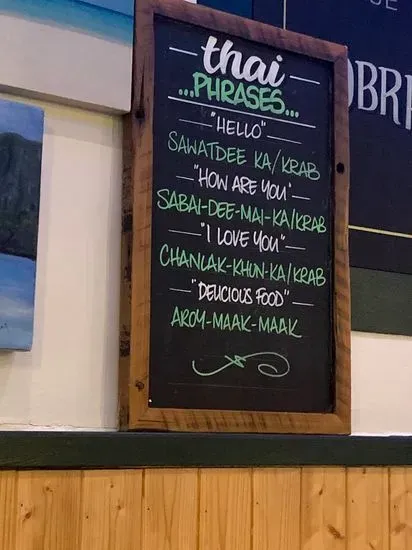 thai
...PHRASES...
"HELLO"
SAWATDEE KA/KRAB
"HOW ARE YOU"
SABAI-DEE-MAI-KA/KRAB
"I LOVE YOU"
CHANLAK-KHUN-KA/KRAB
"DELICIOUS FOOD"
AROY-MAAK-MAAK